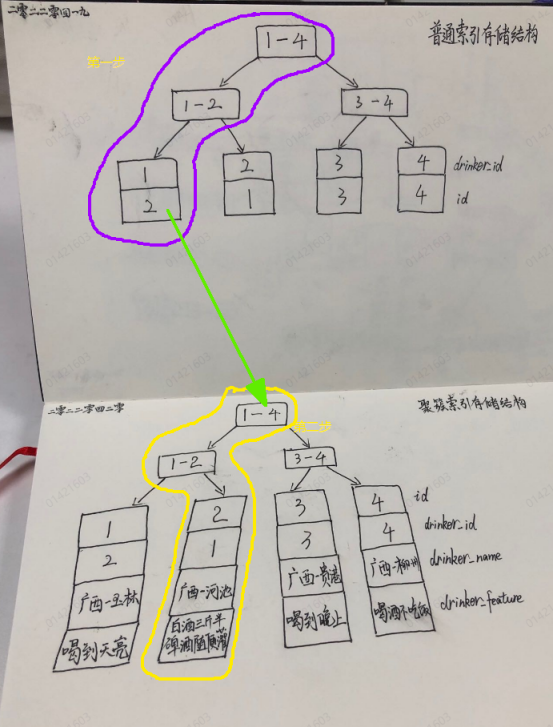 二零二二零四一九
普通索引存储结构
第一步
1-4
1-2
3-4
1 2 3 4 drinker_id
2 1 3 4 id
二零二二零四二零
聚簇索引存储结构
1-4
第二步
1-2
3-4
1 2 3 4 id
2 1 3 4 drinker_id
广西-玉林 广西-河池 广西-贵港 广西-柳州 drinker_name
喝到天亮 白酒三斤半 喝到晚上 喝酒不吃饭 drinker_feature
啤酒随便灌
01421603